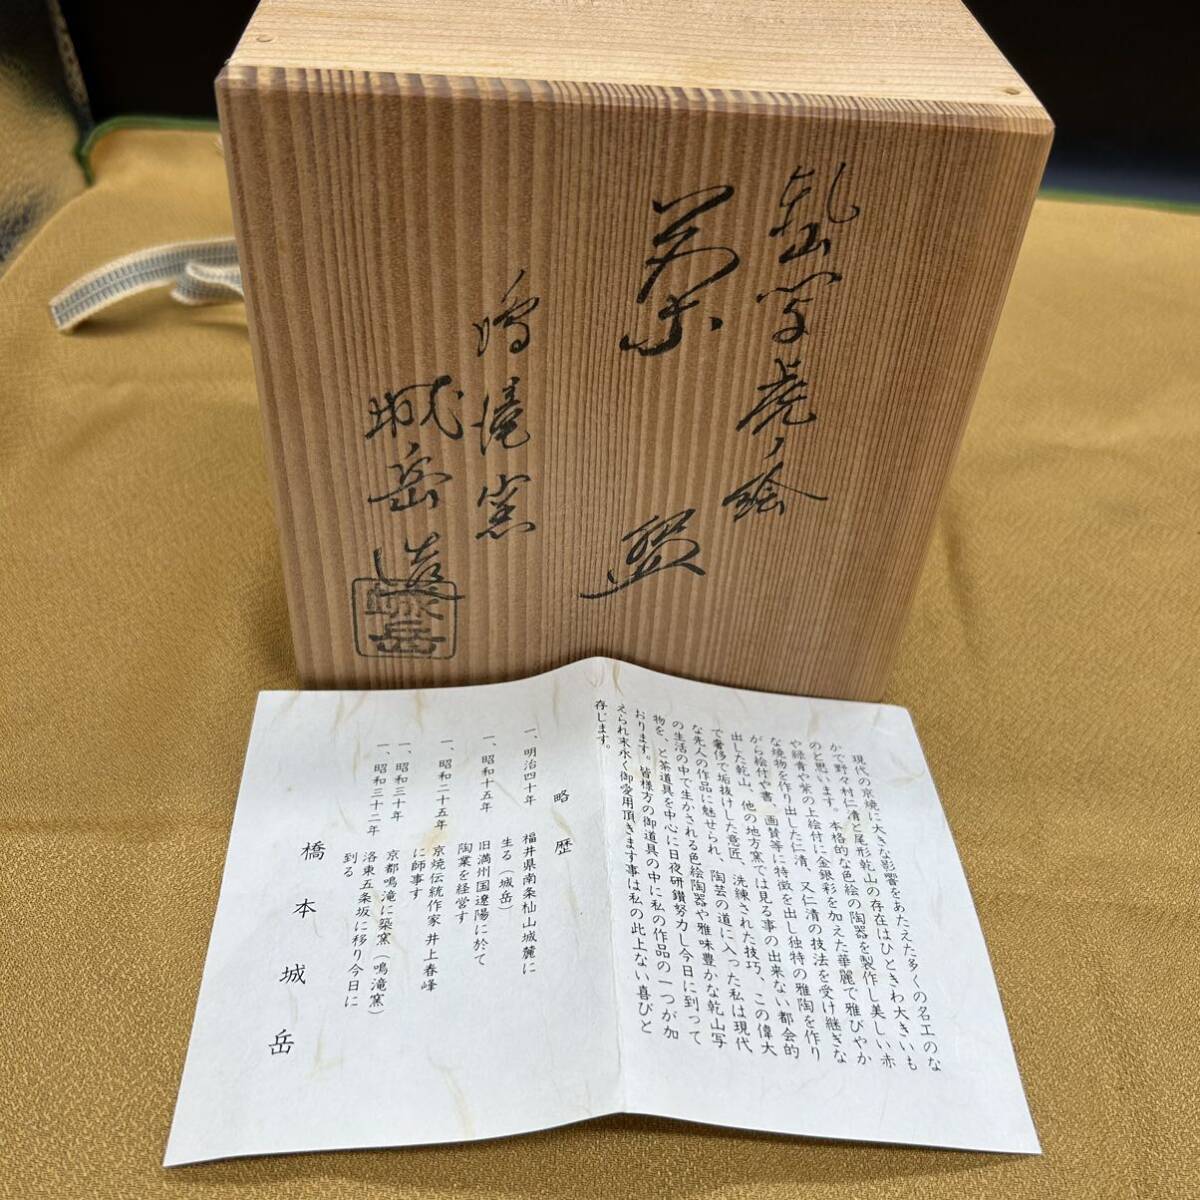 乾山写虎ノ絵
茶盌
鳴滝窯
城岳造
城岳
現代の京焼に大きな影響をあたえた多くの名工のな
かで野々村仁清と尾形乾山の存在はひときわ大きいも
のと思います。本格的な色絵の陶器を製作し美しい赤
や緑青や紫の上絵付に金銀彩を加えた華麗で雅びやか
な焼物を作り出した仁清、又仁清の技法を受け継ぎな
がら絵付や書、画賛等に特徴を出し独特の雅陶を作り
出した乾山、他の地方窯では見る事の出来ない都会的
で奢侈で垢抜けした意匠、洗練された技巧、この偉大
な先人の作品に魅せられ、陶芸の道に入った私は現代
の生活の中で生かされる色絵陶器や雅味豊かな乾山写
物を、と茶道具を中心に日夜研鑽努力し今日に到って
おります。皆様方の御道具の中に私の作品の一つが加
えられ末永く御愛用頂きます事は私の此上ない喜びと
存じます。
略歴
一、明治四十年 福井県南条杣山城麓に
生る（城岳）
一、昭和十五年 旧満州国遼陽に於て
陶業を経営す
一、昭和二十五年 京焼伝統作家 井上春峰
に師事す
一、昭和三十年 京都鳴滝に築窯（鳴滝窯）
一、昭和三十二年 洛東五条坂に移り今日に
到る
橋本城岳